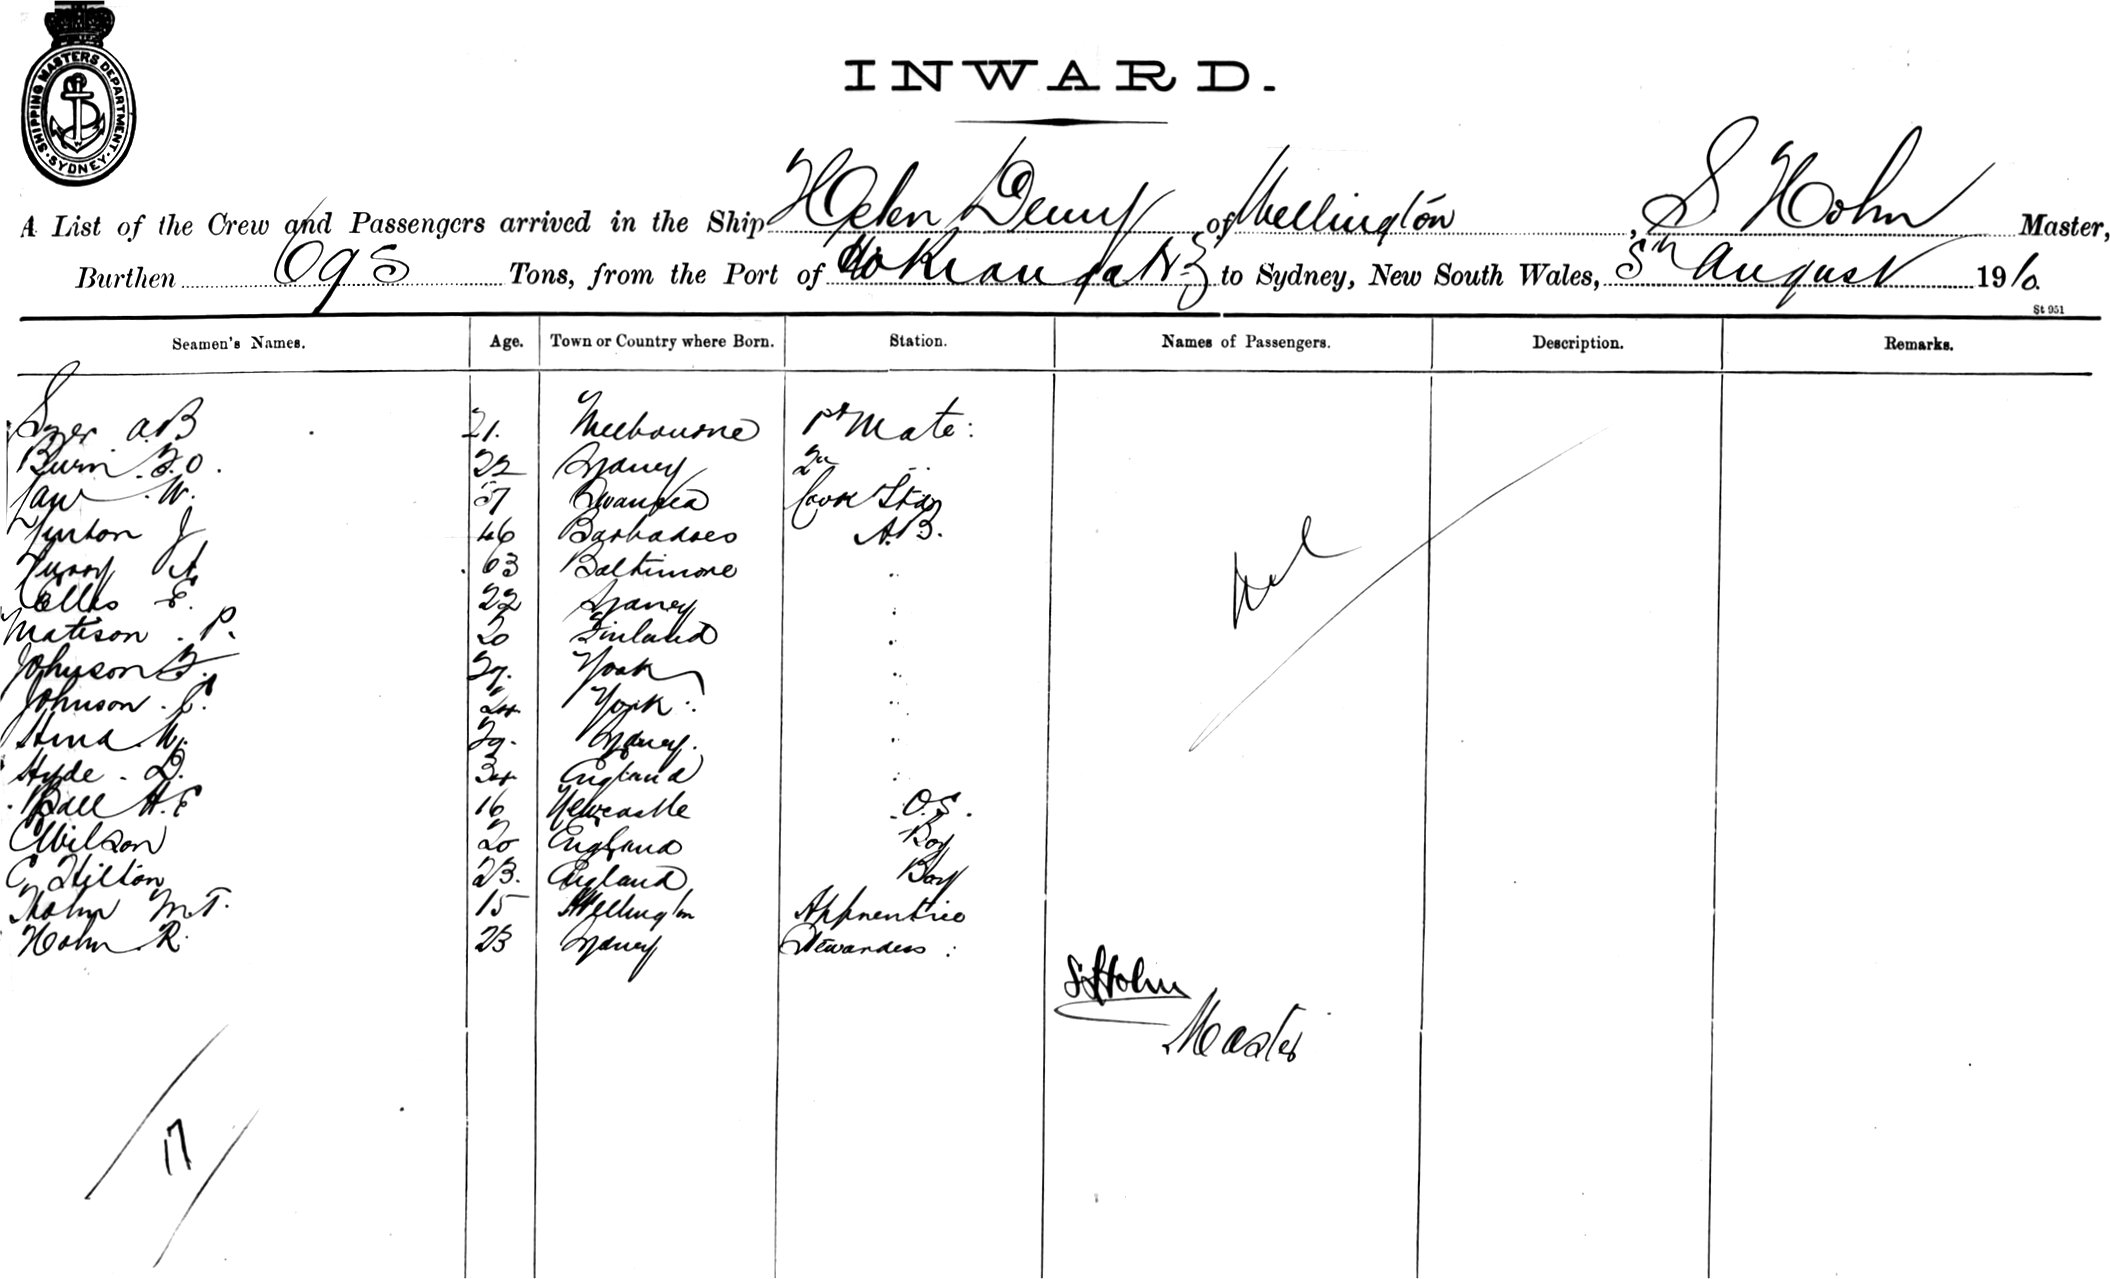 SHIPPING MASTERS DEPARTMENT
SYDNEY
INWARD.
A List of the Crew and Passengers arrived in the Ship Helen Denny of Wellington, S Holm Master,
Burthen 695 Tons, from the Port of Hokianga NZ to Sydney, New South Wales, 5th August 1910.
St 951
Seamen's Names. Age. Town or Country where Born. Station. Names of Passengers. Description. Remarks.
A.B 21. Melbourne 1st Mate:
Burn. F.O. 22 Sydney 2nd ..
Law. W. 57 Swansea Cook Std
J 46 Barbadoes A.B.
A 63 Baltimore ..
Ellis E. 22 Sydney :
Matison. P. 20 Finland :
Johnson F. 29. York ..
Johnson. C. 24 York ..
Hind W. 29. Sydney. ..
Hyde. D. 34 England :
Ball H.E 16 Newcastle O.S.
C Wilson 20 England Boy
C Hilton 23. England Boy
Holm M.T. 15 Wellington Apprentice
Holm R. 23 Sydney Stewardess :
Nil
S Holm
Master
17